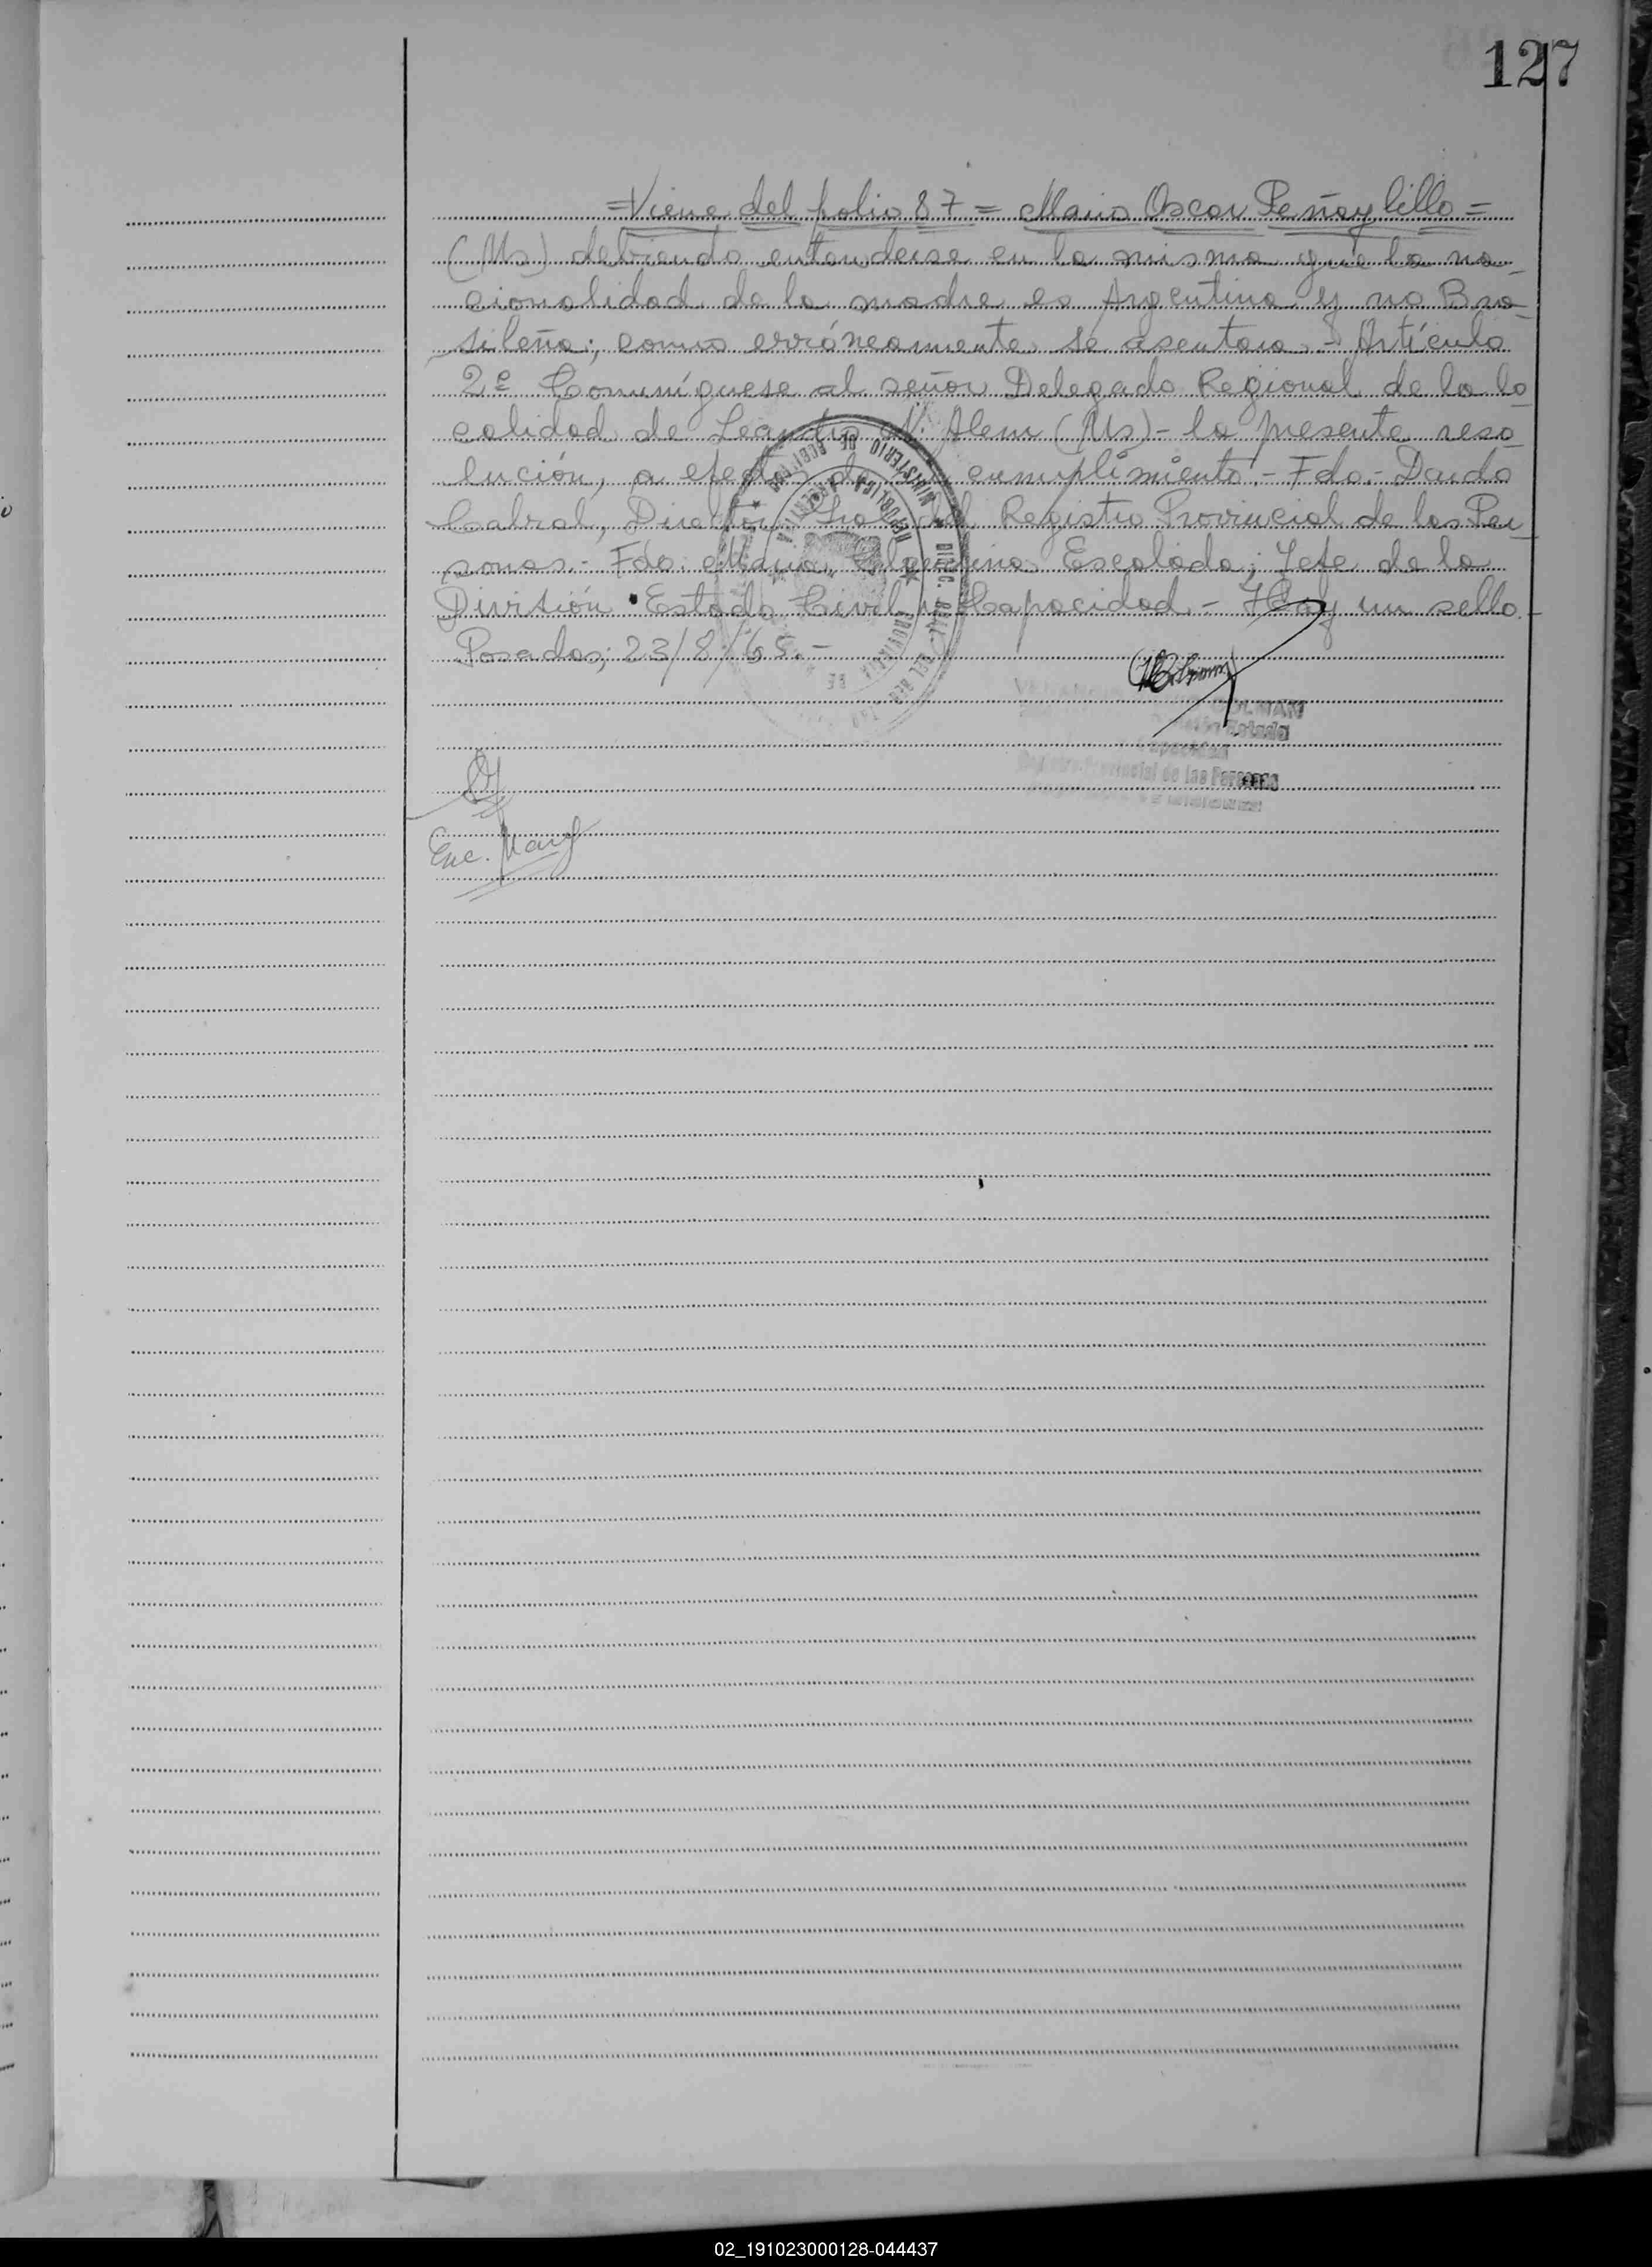 127
=Viene del folio 87= Mario Oscar Peñaylillo=
(Ms) debiendo entenderse en la misma que la na-
cionalidad de la madre es Argentina y no Bra-
sileña; como erróneamente se asentara.- Artículo
2º Comuníquese al señor Delegado Regional de la lo-
calidad de Leandro N. Alem (Ms)- la presente reso-
lución, a efectos de su cumplimiento.- Fdo.- Dardo
Cabral, Director Gral del Registro Provincial de las Per-
sonas.- Fdo. María Escalada; Jefe de la
División Estado Civil y Capacidad.- Hay un sello.-
Posadas; 23/8/65.-
MINISTERIO DE
REPUBLICA ARGENTINA
COLMAN
Estado
Capacidad
Registro Provincial de las Personas
Enc. Marg
02_191023000128-044437